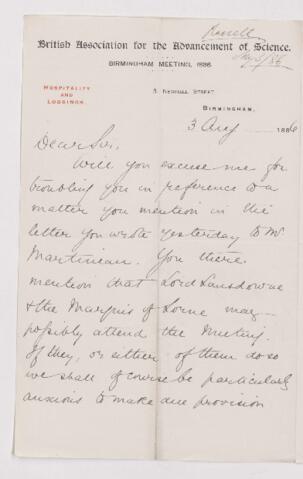 Russell
British Association for the Advancement of Science.
BIRMINGHAM MEETING, 1886.
HOSPITALITY
AND
LODGINGS.
NEWHALL STREET
BIRMINGHAM.
3 Aug 1886
Dear Sir,
Will you excuse me for
troubling you in reference to a
matter you mention in the
letter you wrote yesterday to Mr
Martineau. You there
mention that Lord Lansdowne
& the Marquis of Lorne may
possibly attend the Meeting.
If they, or either of them do so
we shall of course be particularly
anxious to make due provision